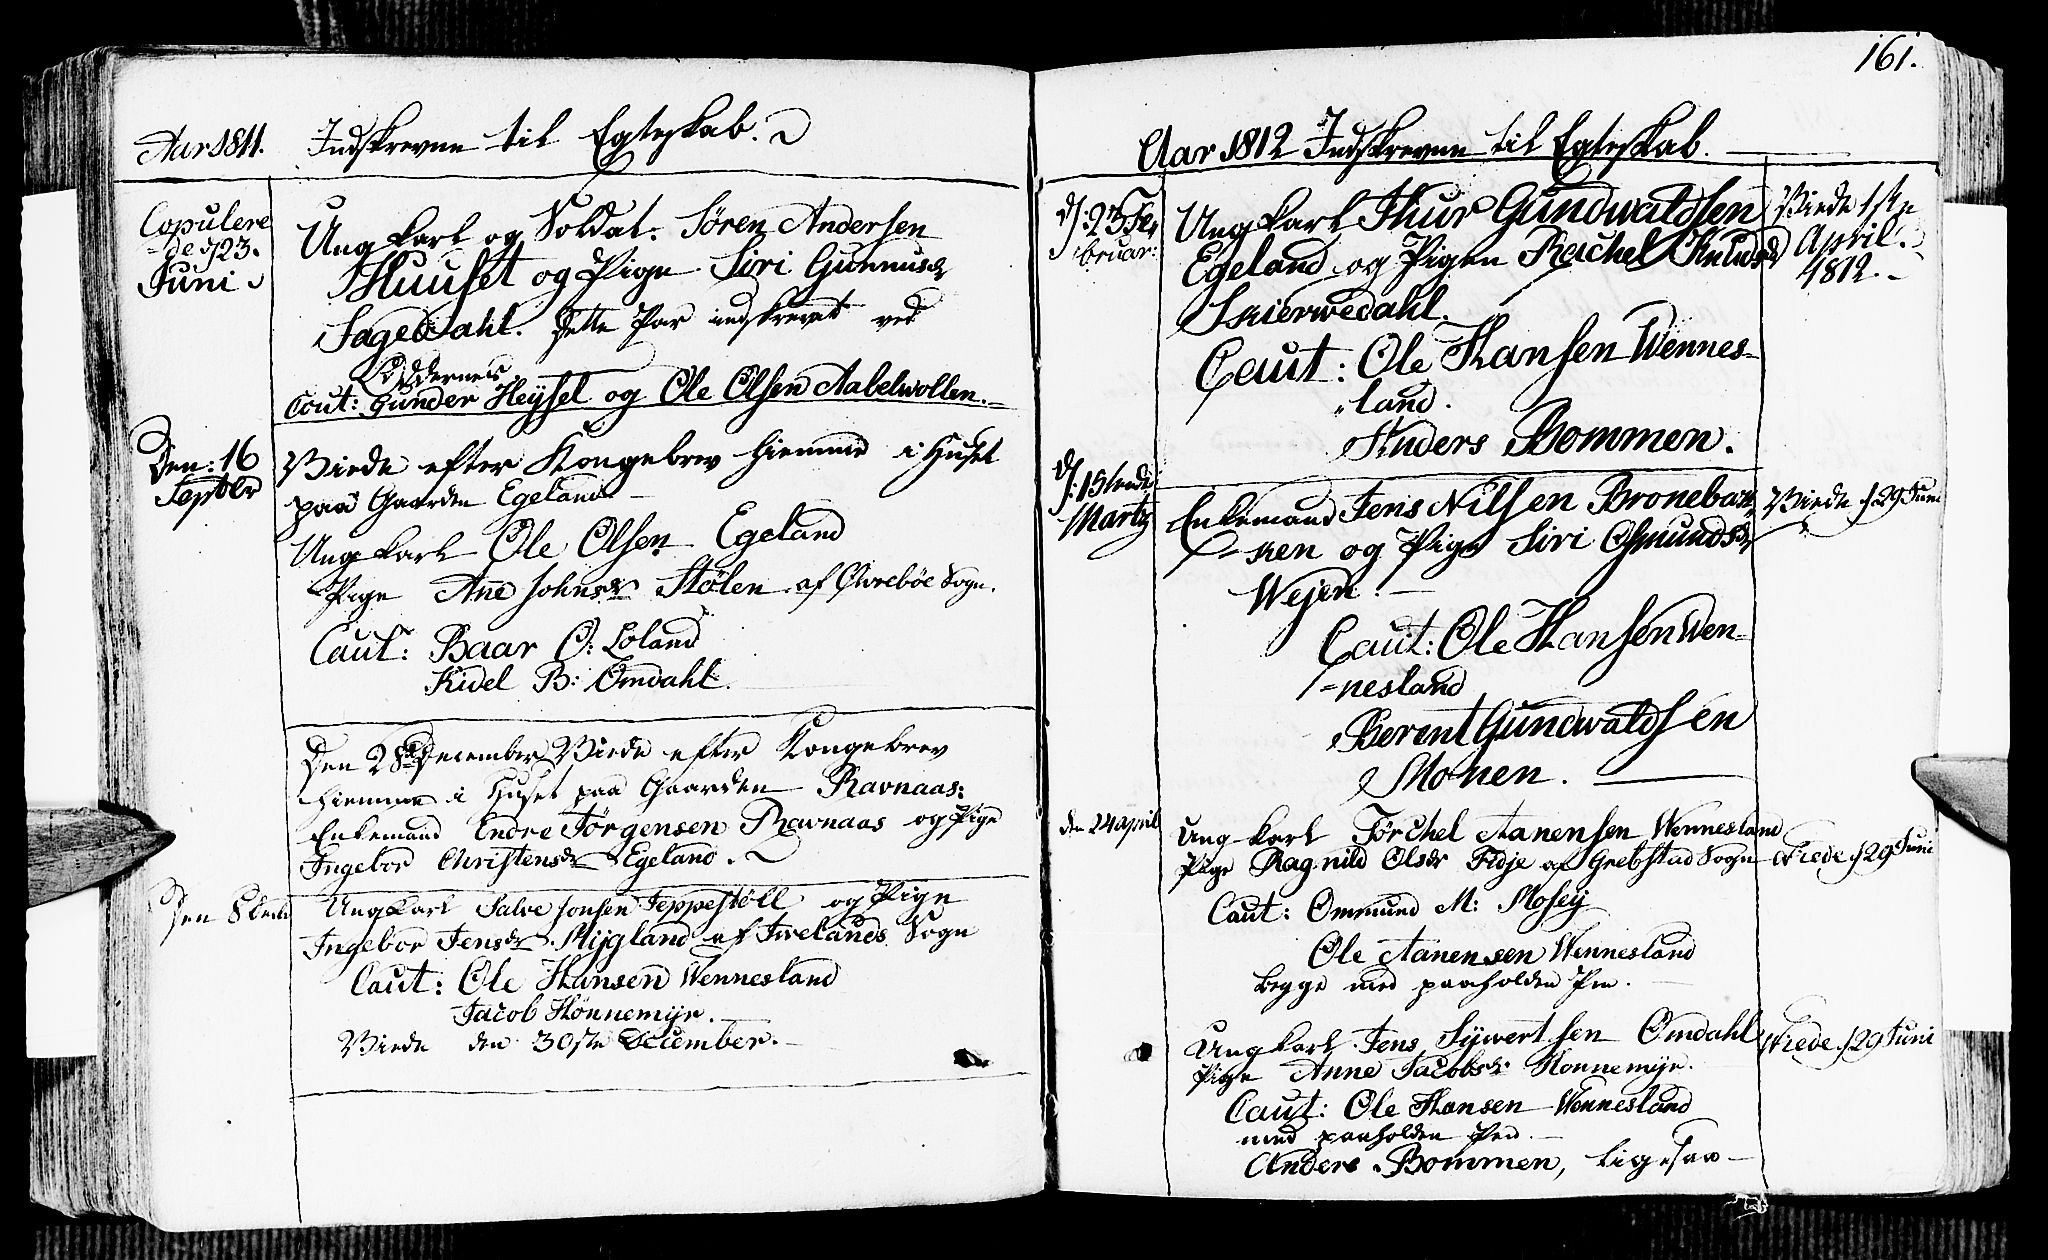 Aar 1811. Indskrevne til Egteskab.
Copulere
de d 23.
Juni
Ung karl og Soldat. Søren Andersen
Huuset og Pige Siri Gunnusdr
Sagedahl. Dette Par indskrevet ved
Oddernes
Cout: Gunder Heysel og Ole Olsen Aabelwollen.
Den: 16
Septbr
Viede efter Kongebrev hiemme i Huset
paa Gaarden Egeland
Ung karl Ole Olsen Egeland
Pige Ane Johnsdr Stølen af Øvrebøe Sogn.
Caut: Baar O: Loland
Kidel B: Omdahl.
Den 28de December Viede efter Kongebrev
hiemme i Huset paa Gaarden Ravnaas:
Enkemand Endre Jørgensen Ravnaas og Pige
Ingebor Christensdr Egeland.
Den 8tende
Ungkarl Salve Jonsen Teppestøll og Pige
Ingebor Jensdr. Mygland af Ivelands Sogn
Caut: Ole Hansen Wennesland
Jacob Hønnemyr.
Viede den 30ste December.
161.
Aar 1812 Indskrevne til Egteskab.
d: 23 Fe,
bruar:
Ung karl Thur Gundwaldsen
Egeland og Pigen Rachel
Skierwedahl.
Caut: Ole Hansen Wennes-
land.
Anders Bommen.
Viede 1ste
April.
1812.
d: 15tende
Martz
Enkemand Jens Nilsen Bronebak,
ken og Pige Siri Osmundsdr
Wejen.
Caut: Ole Hansen Wen-
nesland
Berent Gundwaldsen
Moenen.
Viede d 29 Juni
den 24 April
Ung karl Tørchel Aanensen Wennesland
Pige Ragnild Olsdr Fidje af Grebstad Sogn
Caut: Ommund M: Mosey
Ole Aanensen Wennesland
begge med paaholden Pen.
Wiede d 29 Juni
Ung karl Jens Sywertsen Omdahl
Pige Anne Jacobsdr Honnemyr.
Caut: Ole Hansen Wennesland
med paaholden Pen.
Anders Bommen, ligesaa
Wiede d 29 Juni